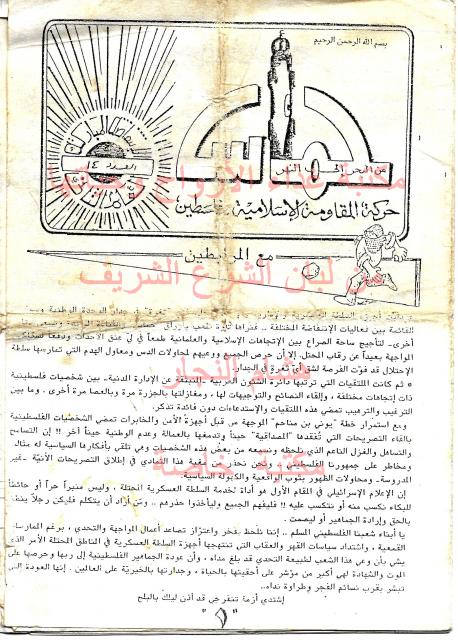 بسم الله الرحمن الرحيم
الانتفاضة المباركة
العدد ١٤
حماس
من البحر إلى النهر
حركة المقاومة الإسلامية . فلسطين
مكتبة غذاء الأرواح
مع المرابطين
من لبان الشرع الشريف
القائمة بين فعاليات الإنتفاضة المختلفة .. فنراها تارة تلعب
أخرى .. لتأجيج ساحة الصراع بين الإتجاهات الإسلامية والعلمانية طمعاً في في عنق الأحداث ودفعاً
المواجهة بعيداً عن رقاب المحتل. إلا أن حرص الجميع ووعيهم لمحاولات الدس ومعاول الهدم التي تمارسها سلطة
الإحتلال قد فوت الفرصة لشق أي ثغرة في الجدار
هشام النجار
* ثم كانت الملتقيات التي ترتبها دائرة الشئون العربية - المنبثقة عن الإدارة المدنية - بين شخصيات فلسطينية
ذات إتجاهات مختلفة ، وإلقاء النصائح والتوجيهات لها ، ومغازلتها بالجزرة مرة وبالعصا مرة أخرى ، وما بين
الترغيب والترهيب تمضي هذه الملتقيات والإستدعاءات دون فائدة تذكر.
ومع استمرار خطة "يوني بن مناحم" الموجهة من قبل أجهزة الأمن والمخابرات تمضي الشخصيات الفلسطينية
بالقاء التصريحات التي تُفقدها "المصداقية" حيناً وتدمغها بالعمالة وعدم الوطنية حيناً أخر !! إن التسامح
والتساهل والغزل الناعم الذي نلحظه ونسمعه من بعض هذه الشخصيات وهي تلقي بأفكارها السياسية له مثالب
ومخاطر على جمهورنا الفلسطيني ، ونحن نحذر من مغبة هذا التمادي في إطلاق التصريحات الآنية - غير
المدروسة . ومحاولات الظهور بثوب الواقعية والكهولة السياسية.
إن الإعلام الإسرائيلي في المقام الأول هو أداة لخدمة السلطة العسكرية المحتلة ، وليس منبراً حراً أو حائطاً
للبكاء نكسب منه أو نتكسب عليه !! فليفهم الجميع وليأخذوا حذرهم .. ومن أراد أن يتكلم فليكن رجلاً ينطق
بالحق وإرادة الجماهير أو ليصمت .
يا أبناء شعبنا الفلسطيني المسلم .. إننا نلحظ بفخر واعتزاز تصاعد أعمال المواجهة والتحدي ، برغم الممارسات
القمعية ، واشتداد سياسات القهر والعقاب التي تنتهجها أجهزة السلطة العسكرية في المناطق المحتلة الأمر الذي
يشي بأن وعي هذا الشعب لطبيعة التحدي قد بلغ مداه ، وأن عودة الجماهير الفلسطينية إلى ربها وحرصها على
الموت والشهادة لهي أكبر من مؤشر على أحقيتها بالحياة ، وجدارتها بالخيرية على العالمين . إنها العودة التي
تبشر بقرب نسائم الفجر وطراوة نداه..
إشتدي أزمة تنفرجي قد أذن ليلك بالبلج
"١"